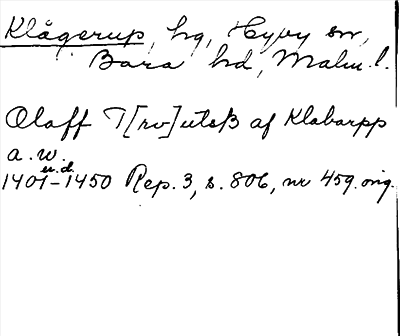 Klågerup, hg, Hyby sn,
Bara hd, Malm. l.
Olaff T[rv]utsß af Klabarpp
a. w.
u.d.
1401-1450 Rep. 3, s. 806, nr 459. orig.